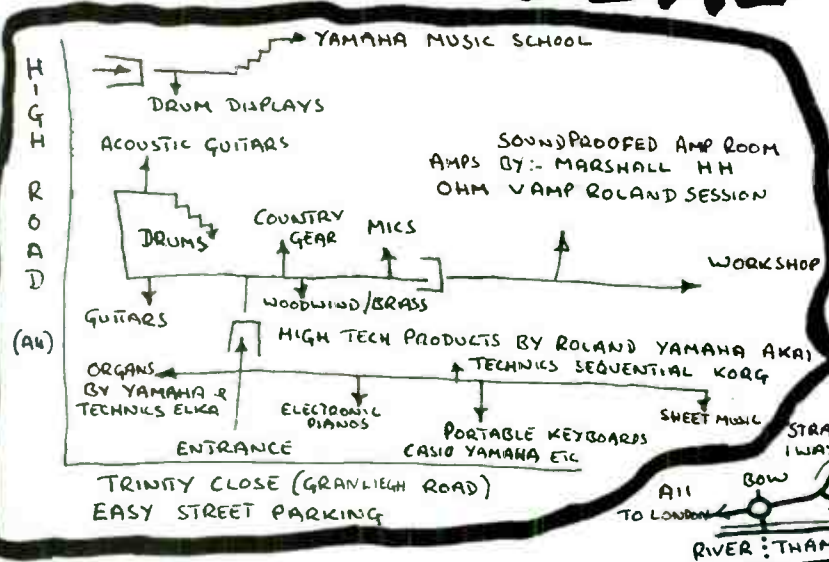 YAMAHA MUSIC SCHOOL
HIGH ROAD
(A11)
DRUM DISPLAYS
ACOUSTIC GUITARS
SOUNDPROOFED AMP ROOM
AMPS BY:- MARSHALL HH
OHM VAMP ROLAND SESSION
DRUMS
COUNTRY
GEAR
MICS
WORKSHOP
GUITARS
WOODWIND/BRASS
HIGH TECH PRODUCTS BY ROLAND YAMAHA AKAI
TECHNICS SEQUENTIAL KORG
ORGANS
BY YAMAHA &
TECHNICS ELKA
ELECTRONIC
PIANOS
PORTABLE KEYBOARDS
CASIO YAMAHA ETC
SHEET MUSIC
ENTRANCE
TRINITY CLOSE (GRANLIEGH ROAD)
EASY STREET PARKING
STRA
1 WAY
BOW
A11
TO LONDON
RIVER THAM